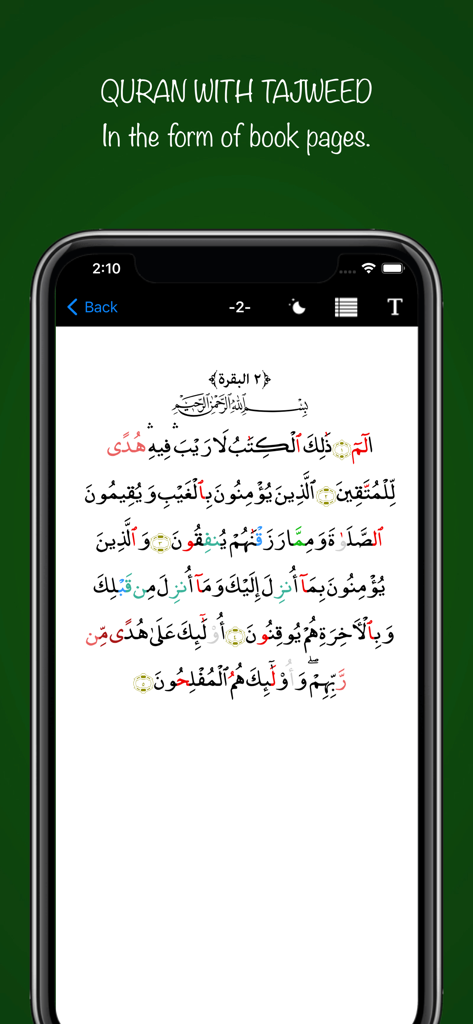 QURAN WITH TAJWEED
In the form of book pages.
2:10
Back
-2-
T
﴿٢ البقرة﴾
بِسْمِ اللهِ الرَّحْمٰنِ الرَّحِيْمِ
الٓمٓ ۝١ ذَٰلِكَ ٱلْكِتَٰبُ لَا رَيْبَ ۛ فِيهِ ۛ هُدًى
لِّلْمُتَّقِينَ ۝٢ ٱلَّذِينَ يُؤْمِنُونَ بِٱلْغَيْبِ وَيُقِيمُونَ
ٱلصَّلَوٰةَ وَمِمَّا رَزَقْنَٰهُمْ يُنفِقُونَ ۝٣ وَٱلَّذِينَ
يُؤْمِنُونَ بِمَآ أُنزِلَ إِلَيْكَ وَمَآ أُنزِلَ مِن قَبْلِكَ
وَبِٱلْأَخِرَةِ هُمْ يُوقِنُونَ ۝٤ أُو۟لَٰٓئِكَ عَلَىٰ هُدًى مِّن
رَّبِّهِمْ ۖ وَأُو۟لَٰٓئِكَ هُمُ ٱلْمُفْلِحُونَ ۝٥